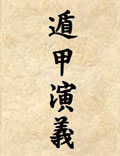 遁甲演義